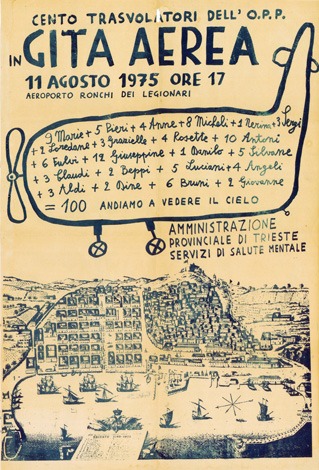 CENTO TRASVOLATORI DELL' O.P.P.
IN GITA AEREA
11 AGOSTO 1975 ORE 17
AEROPORTO RONCHI DEI LEGIONARI
9 Marie + 5 Pieri + 4 Anne + 8 Micheli + 1 Nerina + 3 Sergi
+ 1 Loredane + 3 Grazielle + 4 Rosette + 10 Antoni
+ 6 Fulvi + 12 Giuseppine + 1 Danilo + 5 Silvane
+ 3 Claudi + 2 Beppi + 5 Luciani + 4 Angeli
+ 3 Aldi + 2 Dine + 6 Bruni + 2 Giovanne
= 100 ANDIAMO A VEDERE IL CIELO
AMMINISTRAZIONE
PROVINCIALE DI TRIESTE
SERVIZI DI SALUTE MENTALE